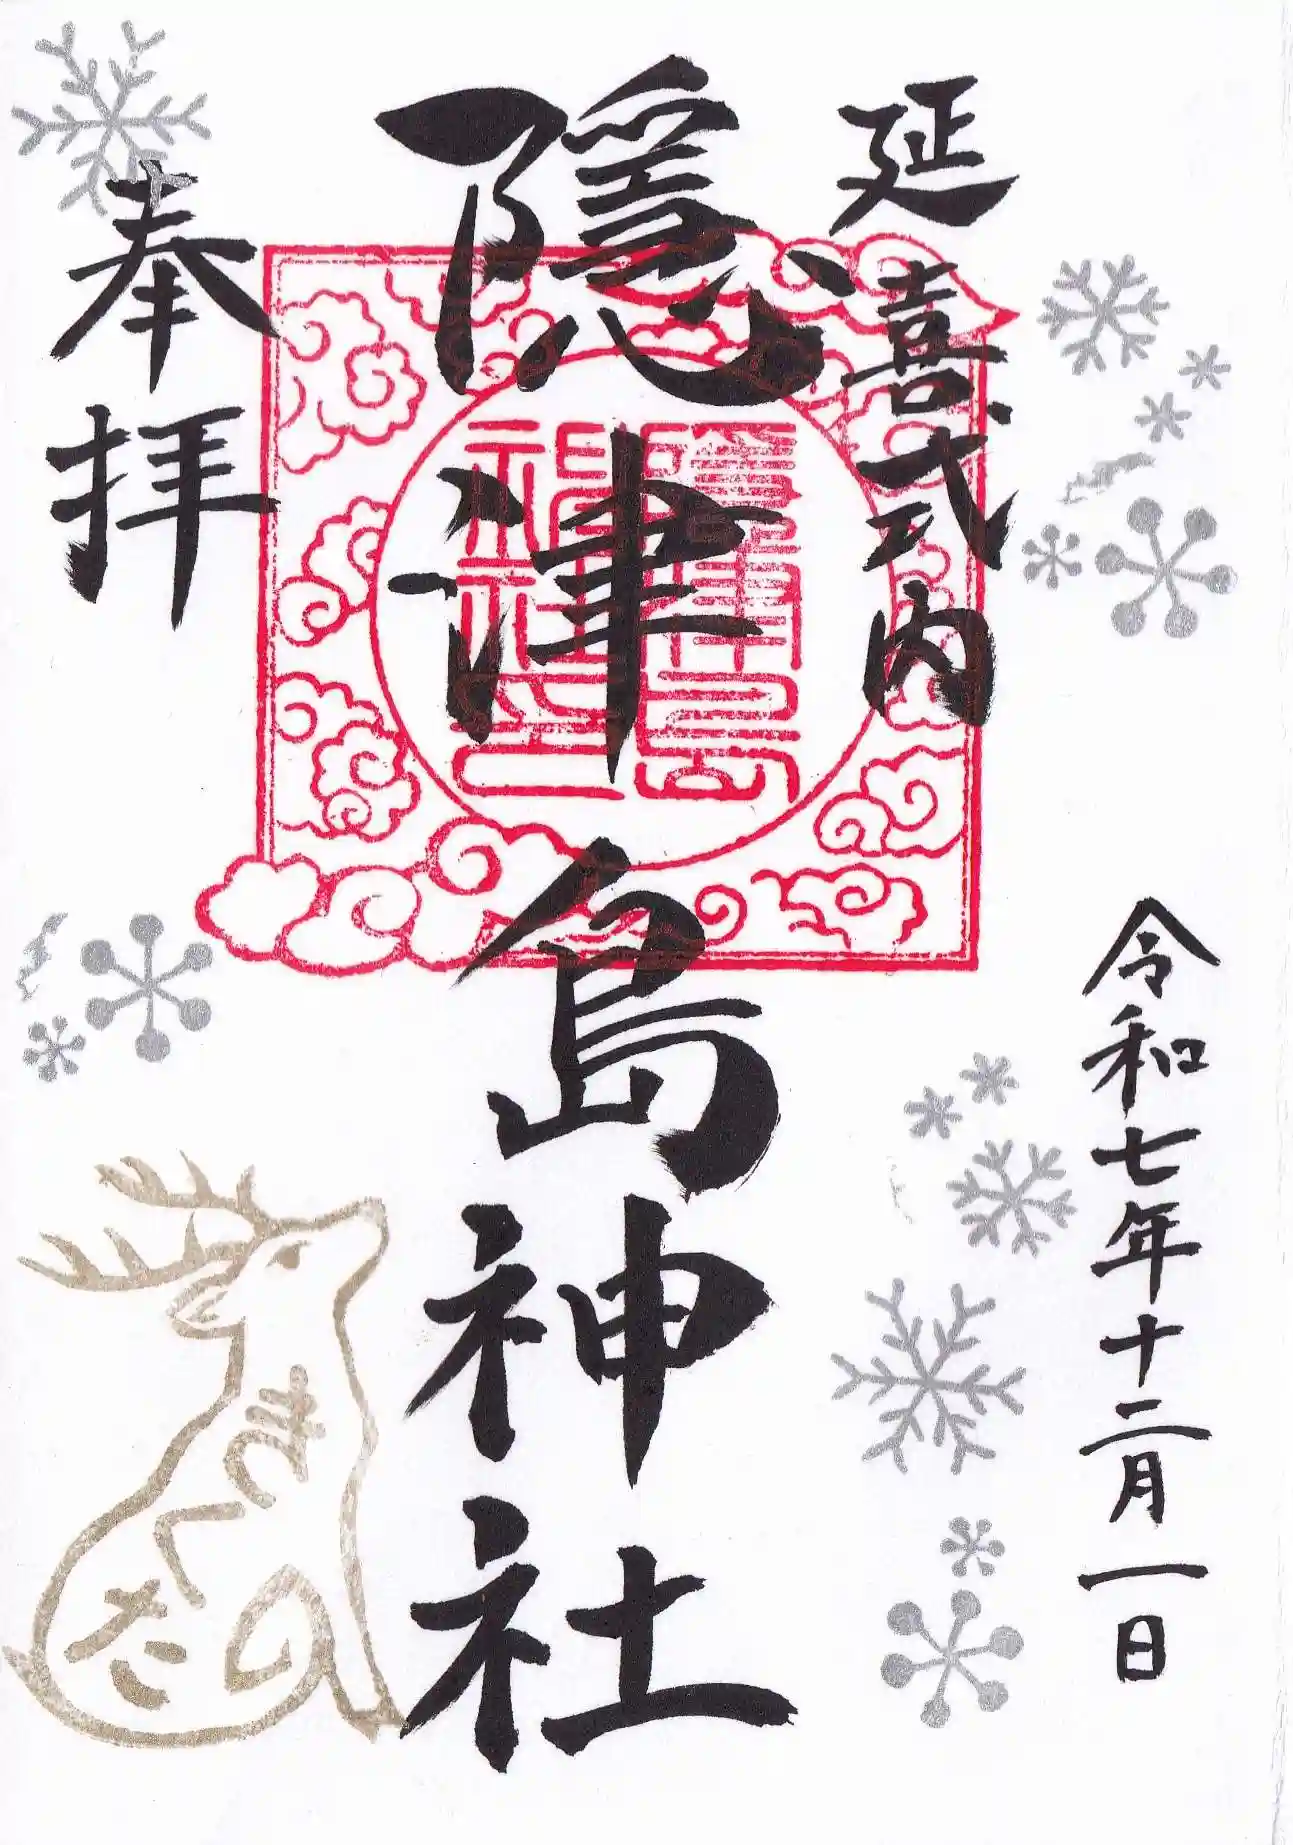 延喜式内
令和七年十二月一日
隠津島神社
隠津島
神社之印
奉拝